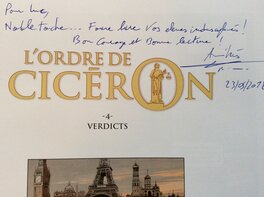 Pour Lucy,
Noble tache... Faire lire vos élèves
Bon Courage et Bonne lecture !
23/03/2018
L'ORDRE DE
CICÉRON
-4-
VERDICTS